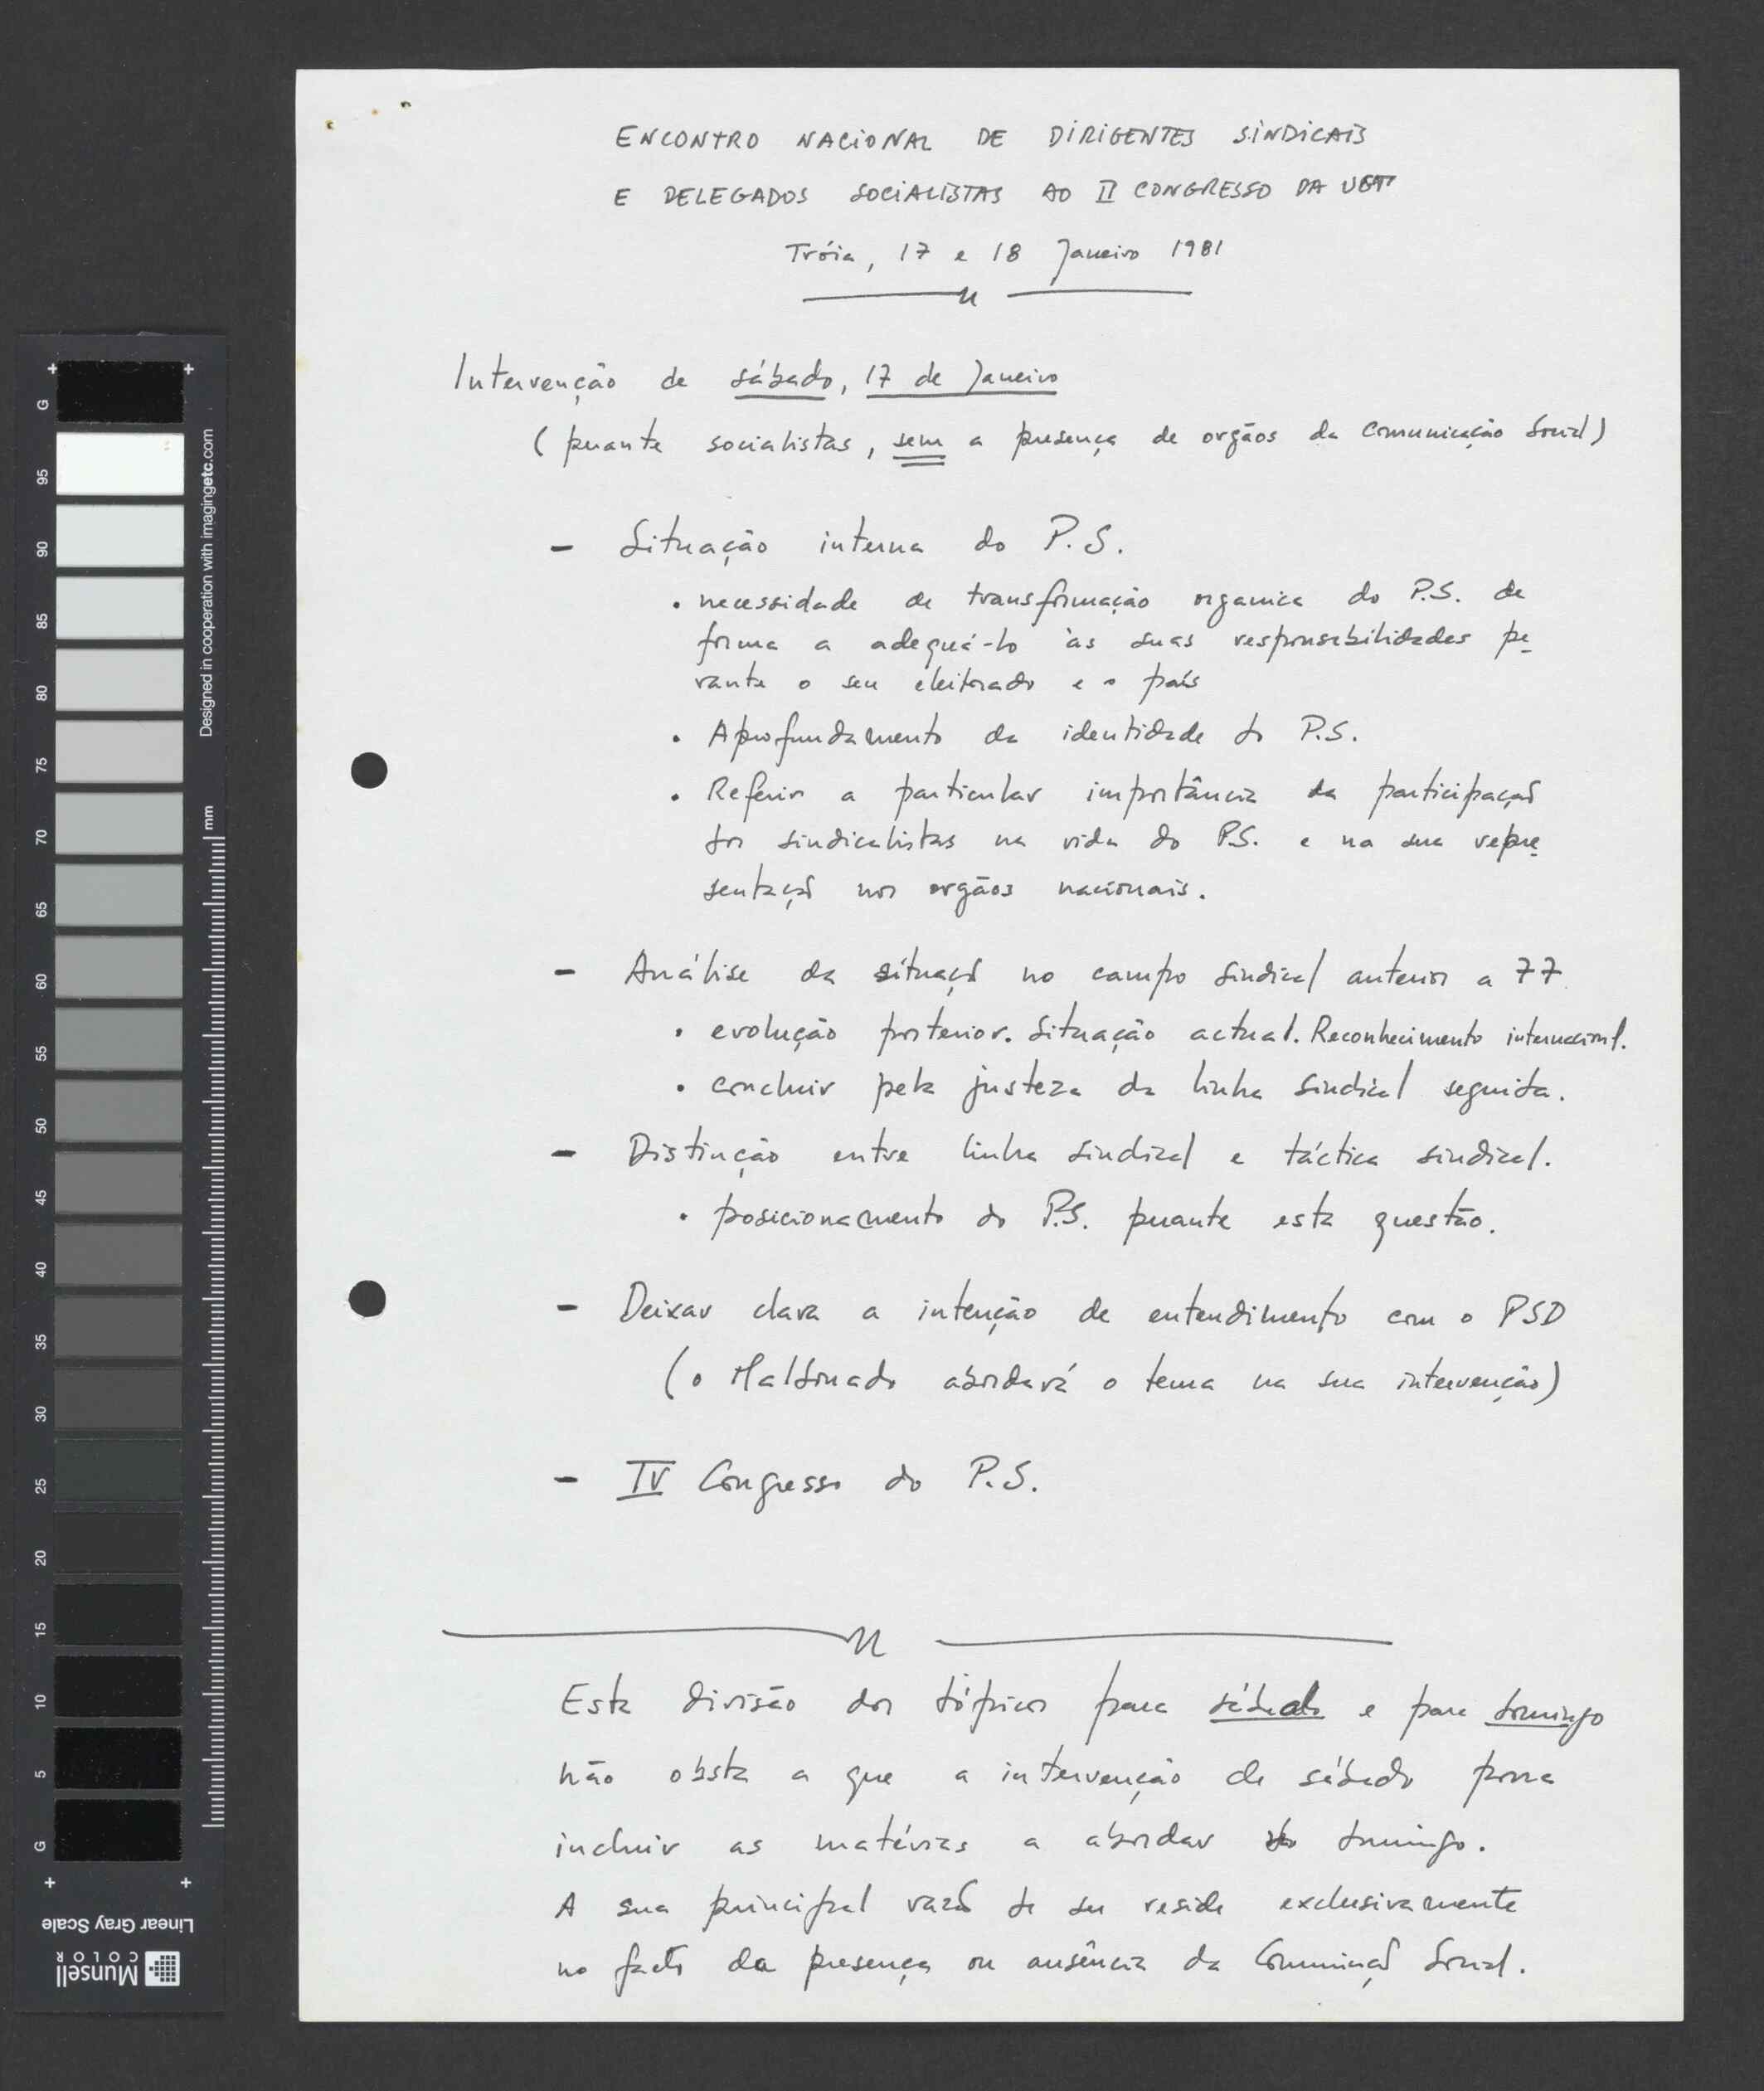 ENCONTRO NACIONAL DE DIRIGENTES SINDICAIS
E DELEGADOS SOCIALISTAS AO II CONGRESSO DA UGT
Tróia, 17 e 18 Janeiro 1981
Intervenção de sábado, 17 de Janeiro
(perante socialistas, sem a presença de orgãos da Comunicação Social)
- Situação interna do P.S.
• necessidade de transformação organica do P.S. de
forma a adequá-lo às suas responsabilidades pe-
rante o seu eleitorado e o país
• Aprofundamento da identidade do P.S.
• Referir a particular importância da participação
dos sindicalistas na vida do P.S. e na sua repre-
sentação nos orgãos nacionais.
- Análise da situação no campo sindical anterior a 77
• evolução posterior. Situação actual. Reconhecimento internacional.
• concluir pela justeza da linha sindical seguida.
- Distinção entre linha sindical e táctica sindical.
• posicionamento do P.S. perante esta questão.
- Deixar clara a intenção de entendimento com o PSD
(o Maldonado abordará o tema na sua intervenção)
- IV Congresso do P.S.
Esta divisão dos tópicos para sábado e para domingo
não obsta a que a intervenção de sábado possa
incluir as matérias a abordar no domingo.
A sua principal razão de ser reside exclusivamente
no facto da presença ou ausência da Comunicação Social.
+ +
G
95
90
85
80
75
70
65
60
55
50
45
40
35
30
25
20
15
10
5
G
+ +
Designed in cooperation with imagingetc.com
mm
Linear Gray Scale
Munsell
COLOR